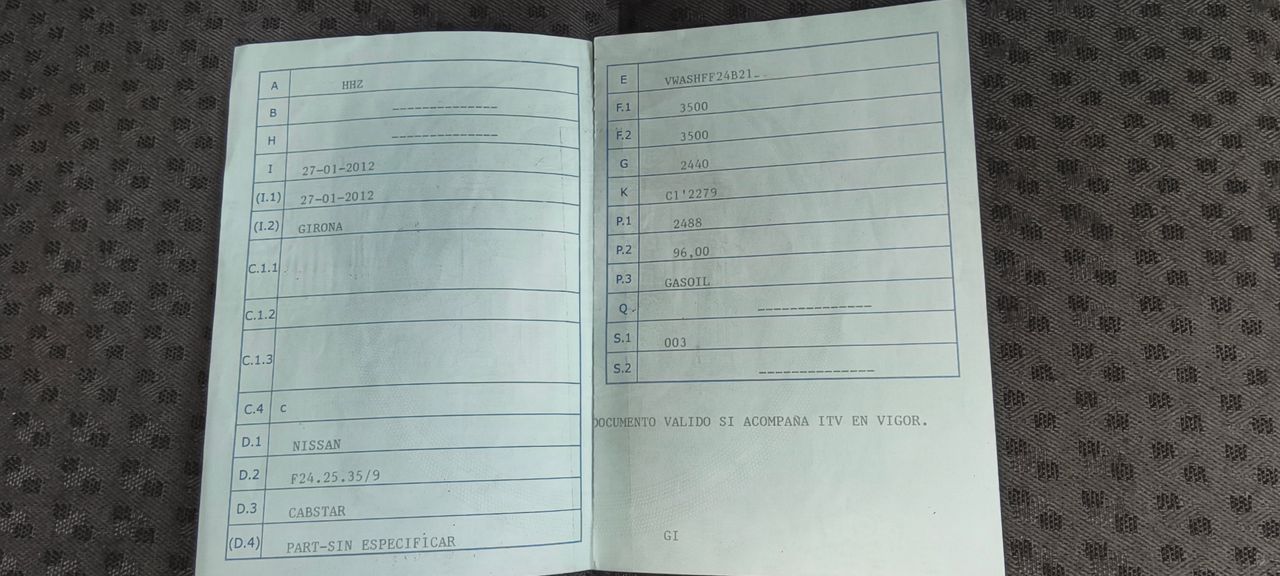 A HHZ
B --------------
H --------------
I 27-01-2012
(I.1) 27-01-2012
(I.2) GIRONA
C.1.1
C.1.2
C.1.3
C.4 C
D.1 NISSAN
D.2 F24.25.35/9
D.3 CABSTAR
(D.4) PART-SIN ESPECIFICAR
E VWASHFF24B21
F.1 3500
F.2 3500
G 2440
K C1'2279
P.1 2488
P.2 96,00
P.3 GASOIL
Q --------------
S.1 003
S.2 --------------
DOCUMENTO VALIDO SI ACOMPAÑA ITV EN VIGOR.
GI